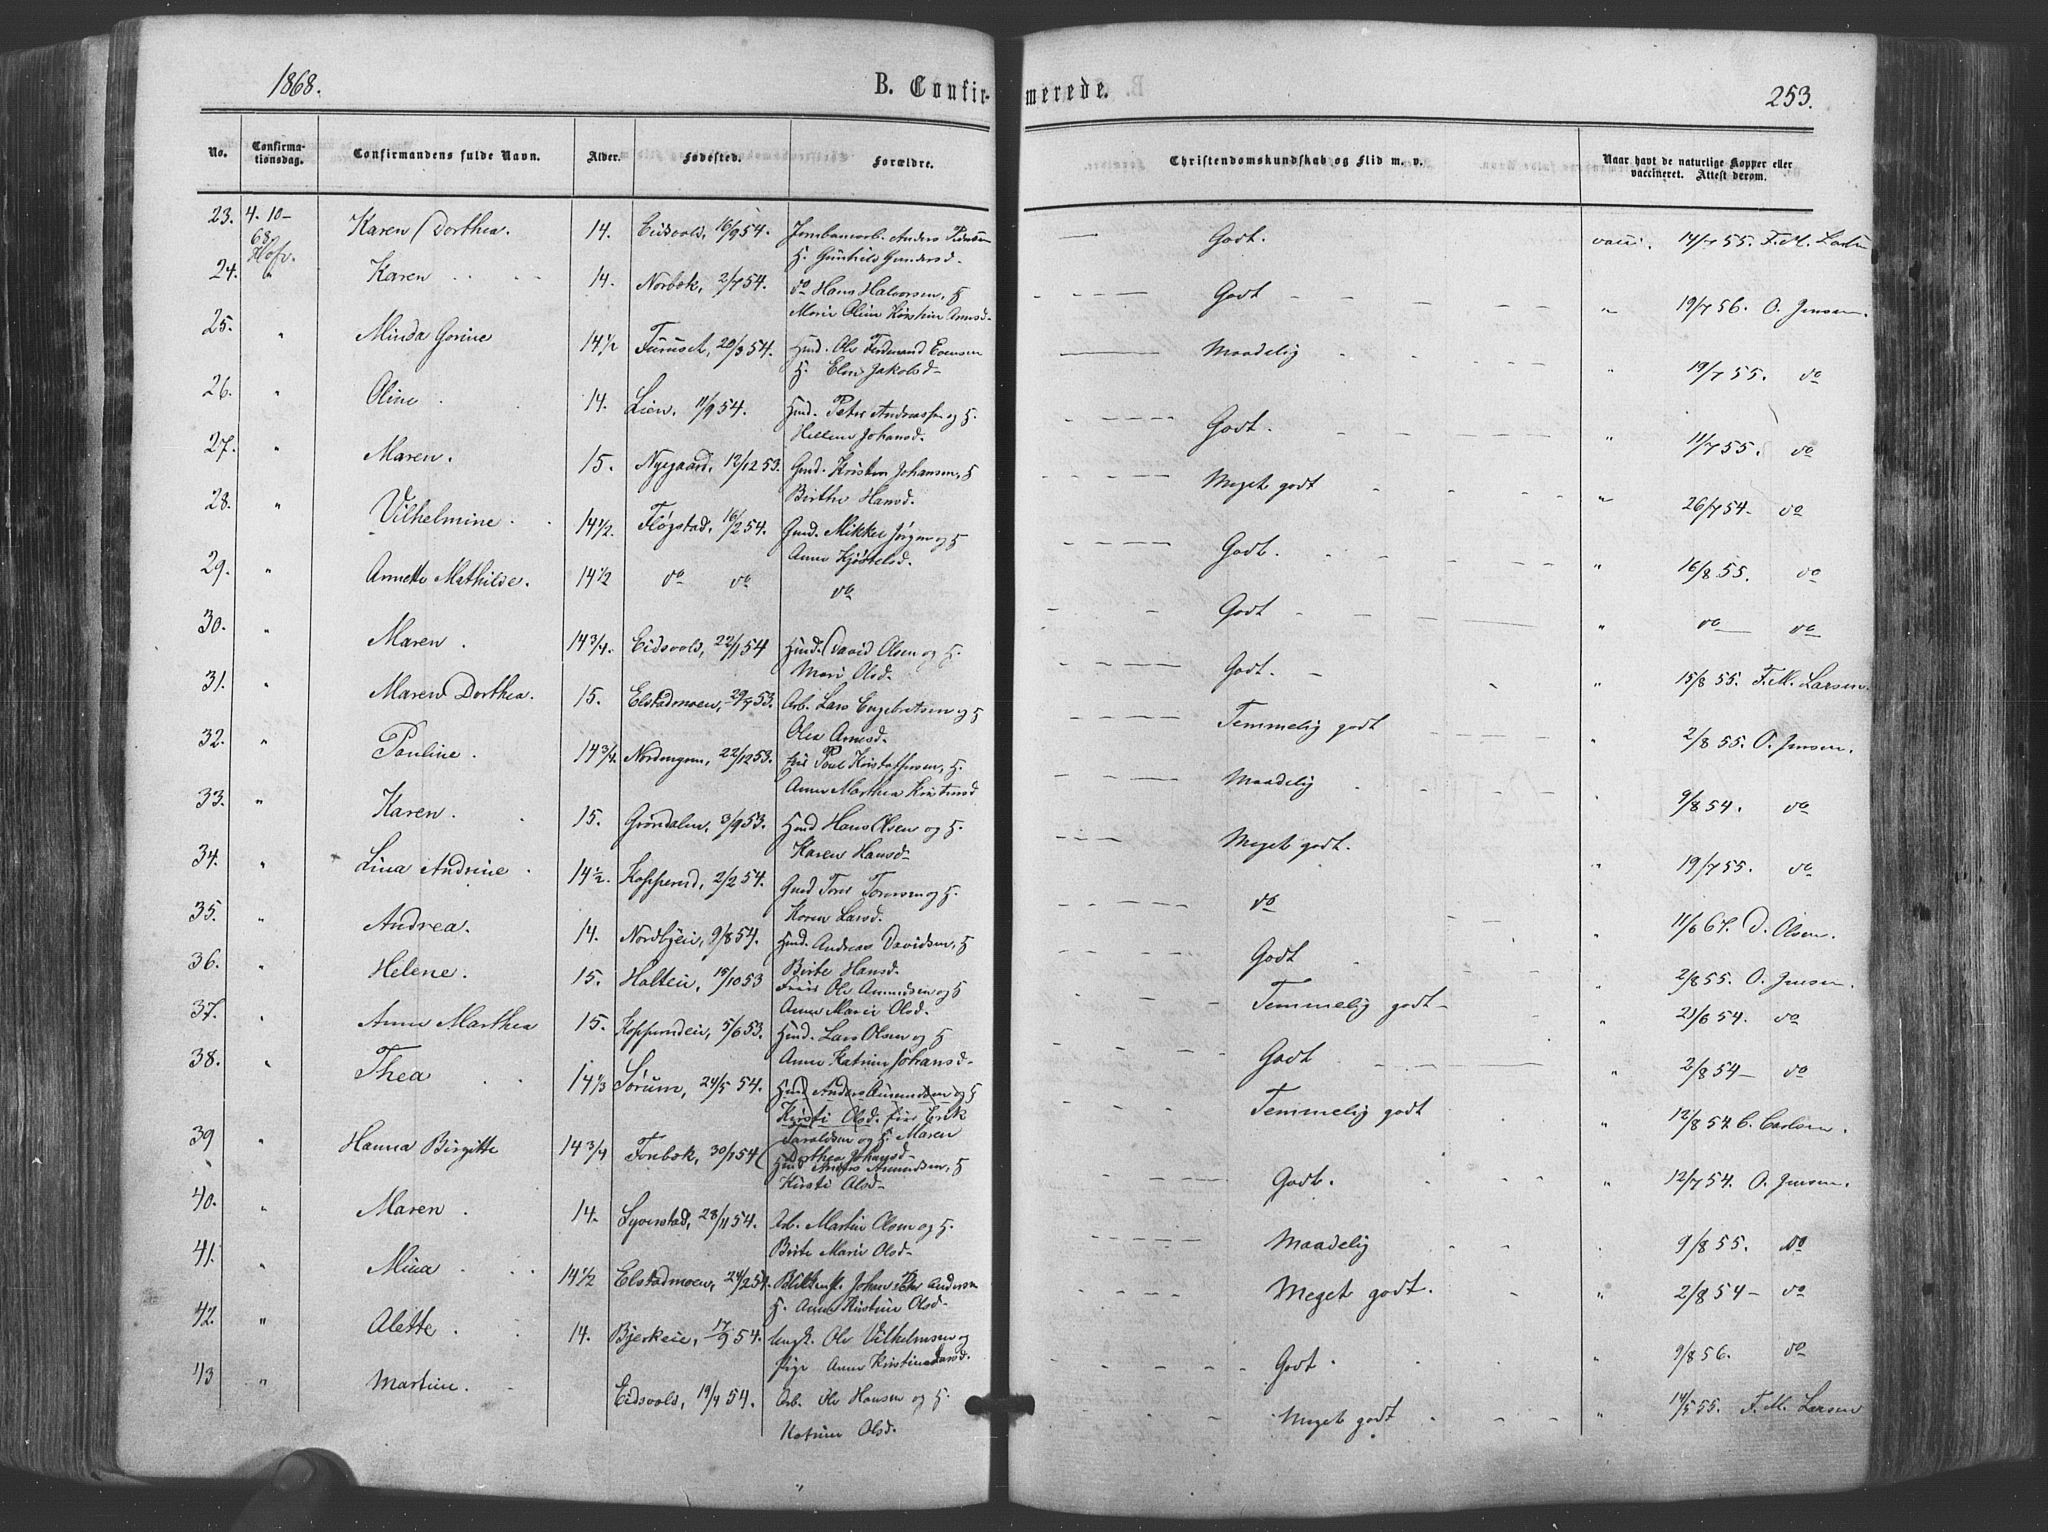 1868.
B. Confirmerede.
253.
No. Confirmationsdag. Confirmandens fulde Navn. Alder. Fødested. Forældre. Christendomskundskab og Flid m. v. Naar havt de naturlige Kopper eller vaccineret. Attest derom.
23. 4. 10- Karen Dorthea. 14. Eidsvold, 16/9 54. Anders Godt. vacci. 14/7 55. F. M. Larsen
68 Hofv. H. Gunhild Gundersd.
24. " Karen 14. Norbæk, 2/7 54. do Hans Halvorsen, H Godt " 19/7 56. O. Jensen.
Marie Oline
25. " Minda Gorine 14 1/2 Furuset, 20/3 54. Hmd. Ole Ferdinand Evensen Maadelig " 19/7 55. do
H. Eline Jakobsd-
26. " Oline. 14. Lien, 11/9 54. Hmd. Peter og H. Godt. " 11/7 55. do
Hellene Johansd.
27. " Maren. 15. Nygaard, 12/12 53. Gmd. Kristen Johansen, H Meget godt " 26/7 54- do
Birthe Hansd.
28. " Vilhelmine. 14 1/2. Fløgstad, 16/2 54. Gmd. Mikkel Jørgen og H Godt. " 16/8 55. do
Anne
29. " Annette Mathilde. 14 1/2 do do do Godt " do do
30. " Maren. 14 3/4. Eidsvold, 22/1 54 Hmd. David Olsen og H. Godt. " 15/8 55. F. M. Larsen.
Mari Olsd.
31. " Maren Dorthea. 15. Elstadmoen, 29/9 53. Arb. Lars Engebretsen og H Temmelig godt " 2/8 55. O. Jensen.
32. " Pauline. 14 3/4. Nordengen, 22/12 53. Paul H. Maadelig " 9/8 54. do
Anne Marthea
33. " Karen. 15. Grøndalen, 3/9 53. Hmd Hans Olsen og H. Meget godt. " 19/7 55. do
Karen Hansd-
34. " Lina Andrine. 14 1/2. 2/2 54. Gmd Tores og H. do " 11/6 67. D. Olsen.
Karen Larsd.
35. " Andrea. 14. Nordbyeie, 9/8 54. Hmd. Andreas Davidsen, H Godt 2/8 55. O. Jensen.
Birte Hansd.
36. " Helene. 15. Holteie, 15/10 53 Ole Amundsen og H Temmelig godt- " 21/6 54. do
Anne Marie Olsd.
37. " Anne Marthea 15. 5/6 53. Hmd. Lars Olsen og H Godt " 2/8 54- do
Anne Katrine Johansd-
38. " Thea 14 1/3 Sørum, 24/5 54. Hmd Anders Amundsen og H Temmelig godt " 12/8 54. C. Carlsen.
Kirsti Olsd. Erik
Taraldsen og H. Maren
Dorthea Johansd-
39 " Hanna Birgitte 14 3/4 Fonbæk, 30/1 54 Hmd Anders Amundsen, H Godt. " 12/7 54. O. Jensen.
Kirsti Olsd-
40. " Maren. 14. Lyverstad, 28/11 54. Arb. Martin Olsen og H. Maadelig 9/8 55. do
Birte Marie Olsd-
41. " Mina 14 1/2 Elstadmoen, 24/2 54. Johan Peter Andersen Meget godt. " 2/8 54- do
H. Anne Kristine Olsd-
42. " Alette. 14. Bjerkeie, 17/9 54. Ungk. Ole Vilhelmsen og Godt. " 9/8 56. do
Pige Anne Kristine Larsd.
43 " Martine. Eidsvold, 19/4 54. Arb. Ole Hansen og H. Meget godt " 14/5 55. F. M. Larsen
Katrine Olsd.